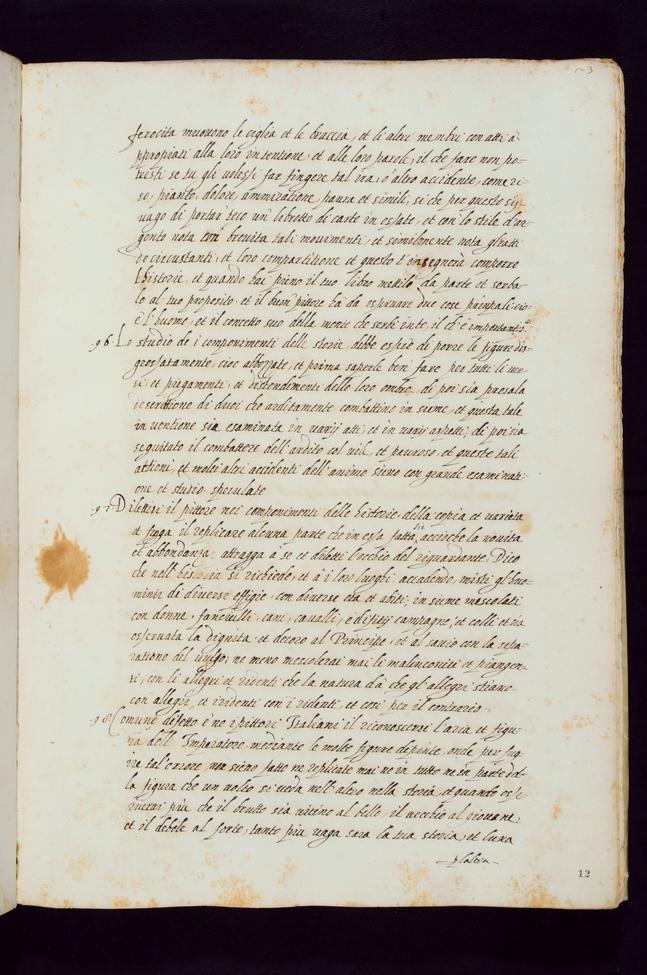 ~3
ferocita muoveno le ciglia et le braccia, et li altri membri con atti a
ppropiati alla loro intentione, et alle loro parole, il che fare non po-
tresti se tu gli volessi far fingere tal ira, o altro accidente, come ri-
so, pianto, dolore, ammiratione, paura et simili, si che per questo sij
vago di portar teco un libretto di carte in ossate, et con lo stile d'ar-
gento nota con brevita tali movimenti, et similmente nota gli atti
de circustanti, et loro compartitione et questo t'insegnera comporre
l'historie, et quando hai pieno il tuo libro mettilo da parte et serba-
lo al tuo proposito, et il buon pittore ha da osservare due cose principali cio
è l'huomo, et il concetto suo della mente che serbi in te il che è importantissº
96. Lo studio de i componimenti delle storie, debbe essere di porre le figure dis-
grossatamente, cioe abbozzate, et prima saperle ben fare per tutti li ver-
si, et piegamenti, et distendimenti delle loro membra, di poi sia presa la
descrittione di duoi che arditamente combattino insieme, et questa tale
inventione sia esaminata in varij atti, et in varij aspetti, di poi sia
seguitato il combattere dell'ardito col vile et pauroso, et queste tali
attioni, et molti altri accidenti dell'animo sieno con grande esaminati-
one et studio speculate
97. Dilettisi il pittore nei componimenti delle historie della copia et varieta
et fugga il replicare alcuna parte che in essa fatta sia accioche la novita
et abbondanza attragga a se et diletti l'occhio del riguardante. Dico
che nell'historia si richiede, et a i loro luoghi accadendo, misti gl'huo-
mini di diverse effigie, con diverse eta et abiti, insieme mescolati
con donne, fanciulli, cani, cavalli, edifitij campagne, et colli et sia
osservata la dignita et decoro al Principe, et al savio con la sepa-
ratione del vulgo, ne meno mescolerai mai li malinconici et piangen-
ti, con li allegri et ridenti che la natura dà che gli allegri stiano
con allegri, et i ridenti con i ridenti, et cosi per il contrario
98. Comune difetto è ne i pittori Italiani il riconoscersi l'aria et figu-
ra dell'Imperatore, mediante le molte figure depinte, onde per fug-
ire tal errore, non sieno fatte ne replicate mai ne in tutto ne in parte dal-
la figura che un volto si veda nell altro nella storia, et quando osse-
rverai più che il brutto sia vicino al bello, il vecchio al giovane,
et il debole al forte, tanto piu vaga sara la tua storia, et l'una
12